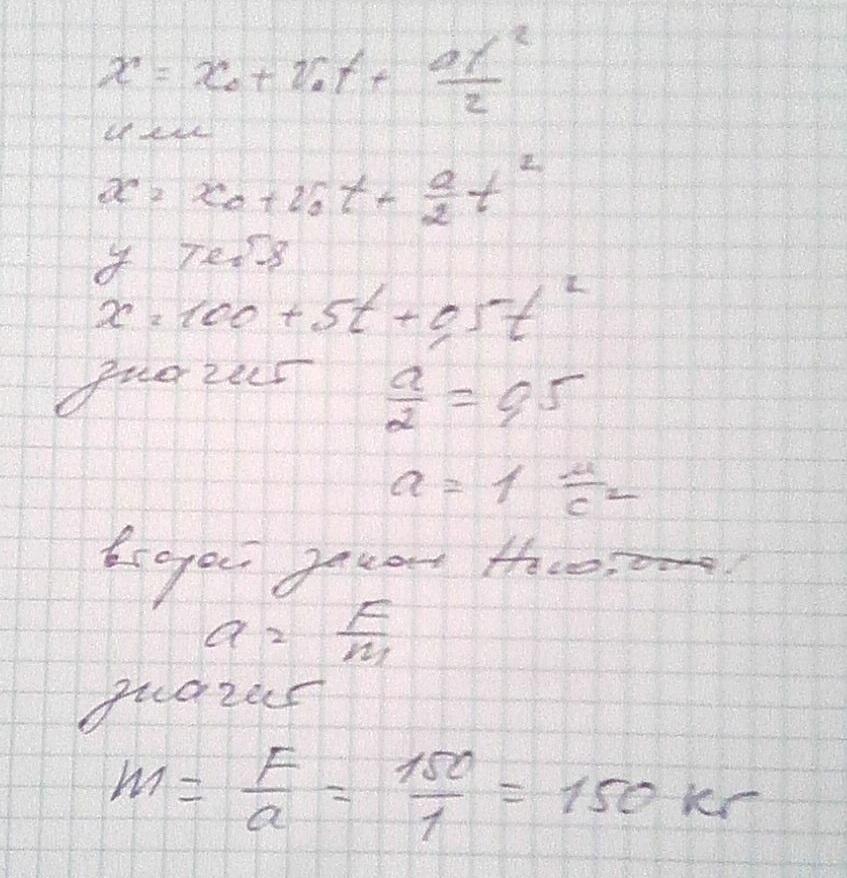 x = x₀ + v₀t + at²/2
или
x = x₀ + v₀t + a/2 t²
у тебя
x = 100 + 5t + 0,5t²
значит a/2 = 0,5
a = 1 м/с²
второй закон Ньютона:
a = F/m
значит
m = F/a = 150/1 = 150 кг